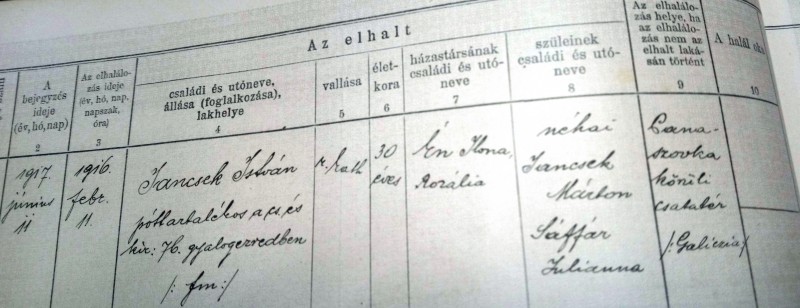 Az elhalt
A bejegyzés ideje (év, hó, nap)
Az elhalálozás ideje (év, hó, nap, napszak, óra)
családi és utóneve, állása (foglalkozása), lakhelye
vallása
életkora
házastársának családi és utóneve
szüleinek családi és utóneve
Az elhalálozás helye, ha az elhalálozás nem az elhalt lakásán történt
A halál oka
2
3
4
5
6
7
8
9
10
1917.
június
11
1916.
febr.
11.
Jancsek István
póttartalékos a cs. és
kir. 76. gyalogezredben
/: fm :/
r. kath
30
éves
Én Ilona,
Rozália
néhai
Jancsek
Márton
Sáffár
Julianna
Cana-
szovka
körüli
csatatér
/:Galiczia:/